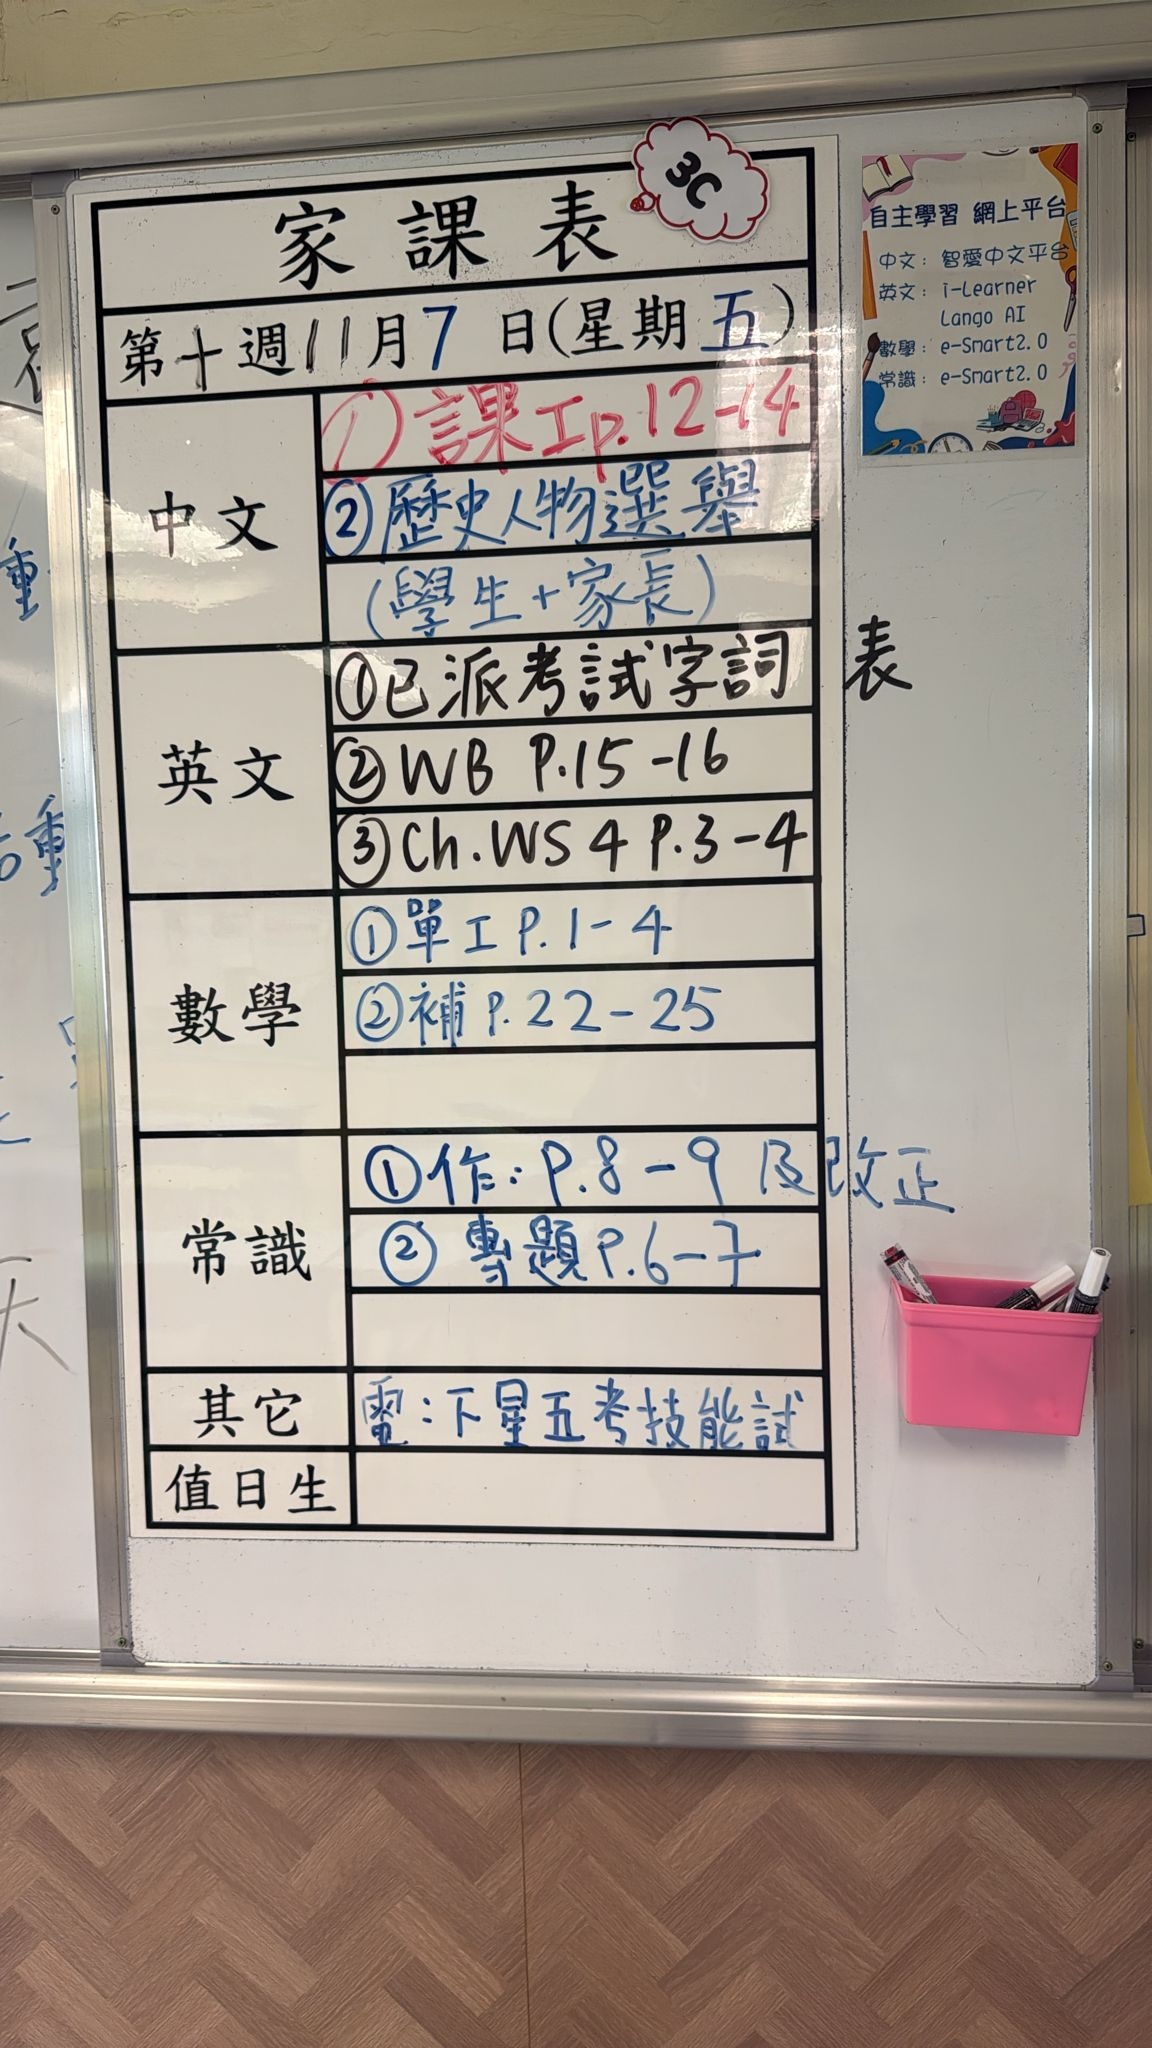 家課表
3C
第十週11月7日(星期五)
中文
① 課工p.12-14
②歷史人物選舉
(學生+家長)
英文
①已派考試字詞表
②WB P.15-16
③Ch.WS 4 P.3-4
數學
①單工P.1-4
②補P.22-25
常識
①作:P.8-9及改正
②專題P.6-7
其它
電:下星五考技能試
值日生
自主學習 網上平台
中文:智愛中文平台
英文:i-Learner
Lango AI
數學:e-Smart2.0
常識:e-Smart2.0